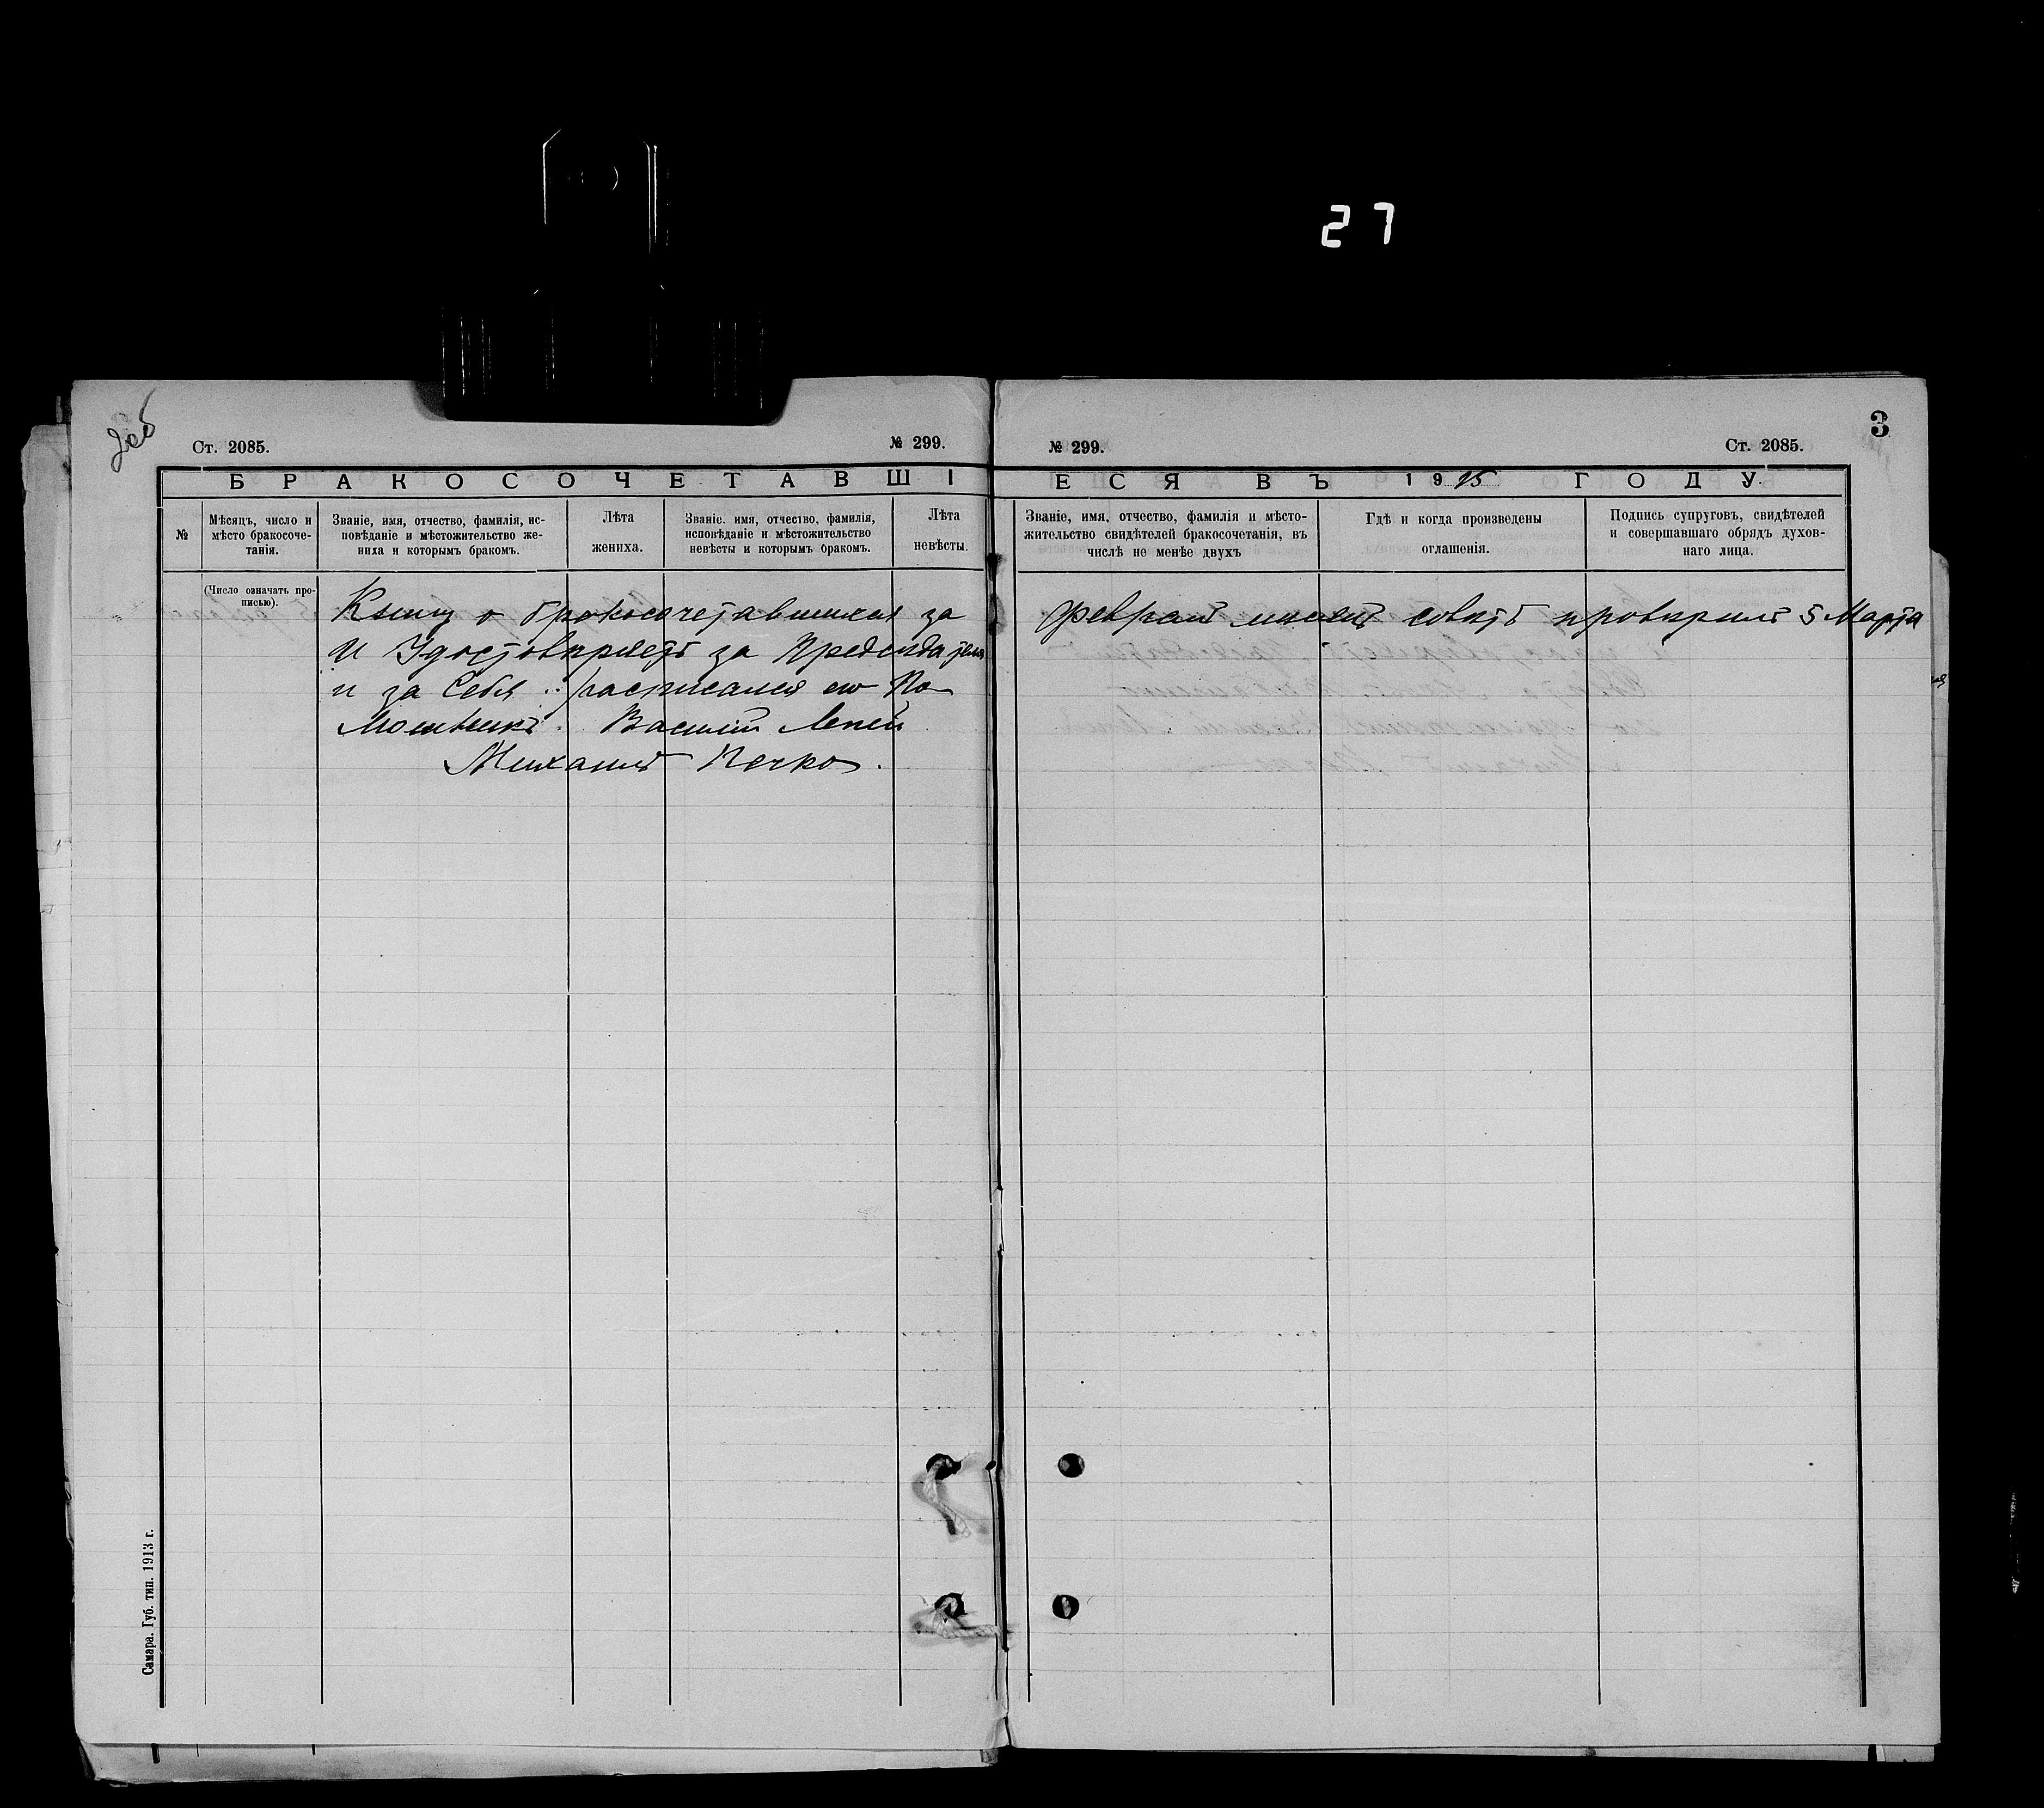 27
Ст. 2085.
№ 299.
БРАКОСОЧЕТАВШІ
№
Мѣсяцъ, число и
мѣсто бракосоче-
танія.
Званіе, имя, отчество, фамилія, ис-
повѣданіе и мѣстожительство же-
ниха и которымъ бракомъ.
Лѣта
жениха.
Званіе. имя, отчество, фамилія,
исповѣданіе и мѣстожительство
невѣсты и которымъ бракомъ.
Лѣта
невѣсты.
(Число означать про-
писью).
о бракосочетавшихся за
И Удостовѣряетъ за Председателя
и за Себя расписался его По
Мошникъ Василій Лепей
Михаилъ Печко.
Самара. Губ. тип. 1913 г.
3
№ 299.
Ст. 2085.
ЕСЯ ВЪ 1915 ГОДУ.
Званіе, имя, отчество, фамилія и мѣсто-
жительство свидѣтелей бракосочетанія, въ
числѣ не менѣе двухъ
Гдѣ и когда произведены
оглашенія.
Подпись супруговъ, свидѣтелей
и совершавшаго обрядъ духов-
наго лица.
совѣтъ провѣрилъ 5 Марта